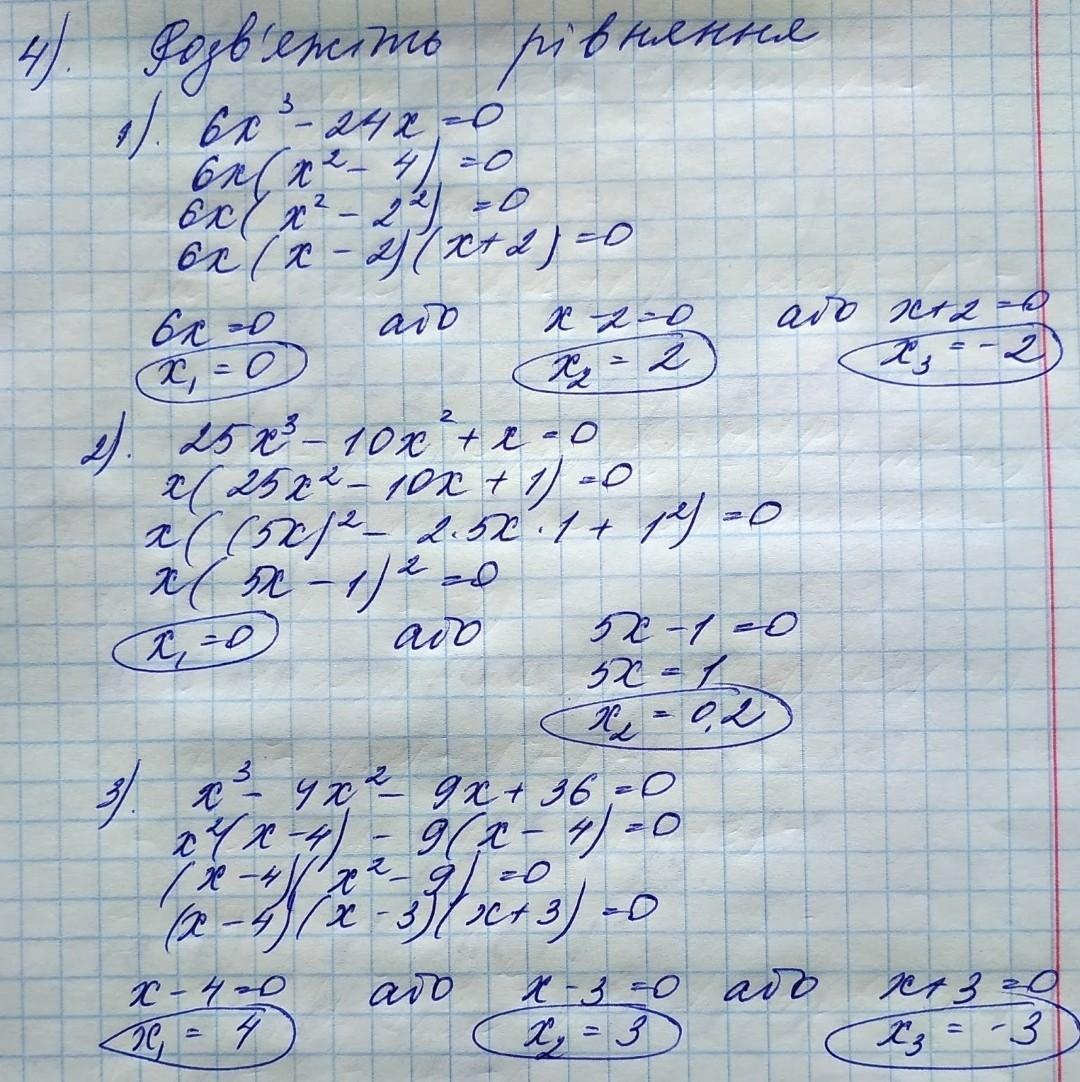 4). Розв'яжіть рівняння
1). 6x³ - 24x = 0
6x(x² - 4) = 0
6x(x² - 2²) = 0
6x(x - 2)(x + 2) = 0
6x = 0 або x - 2 = 0 або x + 2 = 0
x₁ = 0 x₂ = 2 x₃ = -2
2). 25x³ - 10x² + x = 0
x(25x² - 10x + 1) = 0
x((5x)² - 2·5x·1 + 1²) = 0
x(5x - 1)² = 0
x₁ = 0 або 5x - 1 = 0
5x = 1
x₂ = 0,2
3). x³ - 4x² - 9x + 36 = 0
x²(x - 4) - 9(x - 4) = 0
(x - 4)(x² - 9) = 0
(x - 4)(x - 3)(x + 3) = 0
x - 4 = 0 або x - 3 = 0 або x + 3 = 0
x₁ = 4 x₂ = 3 x₃ = -3